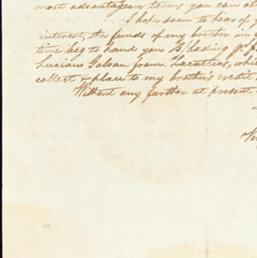 most advantageous terms you can ob
I hope soon to hear of y
interest, the funds of my brother in y
time beg to hand you B/Lading p.
Luciano Galvan from Zacatecas, whic
collect & place to my brother's credit
Without any further at present